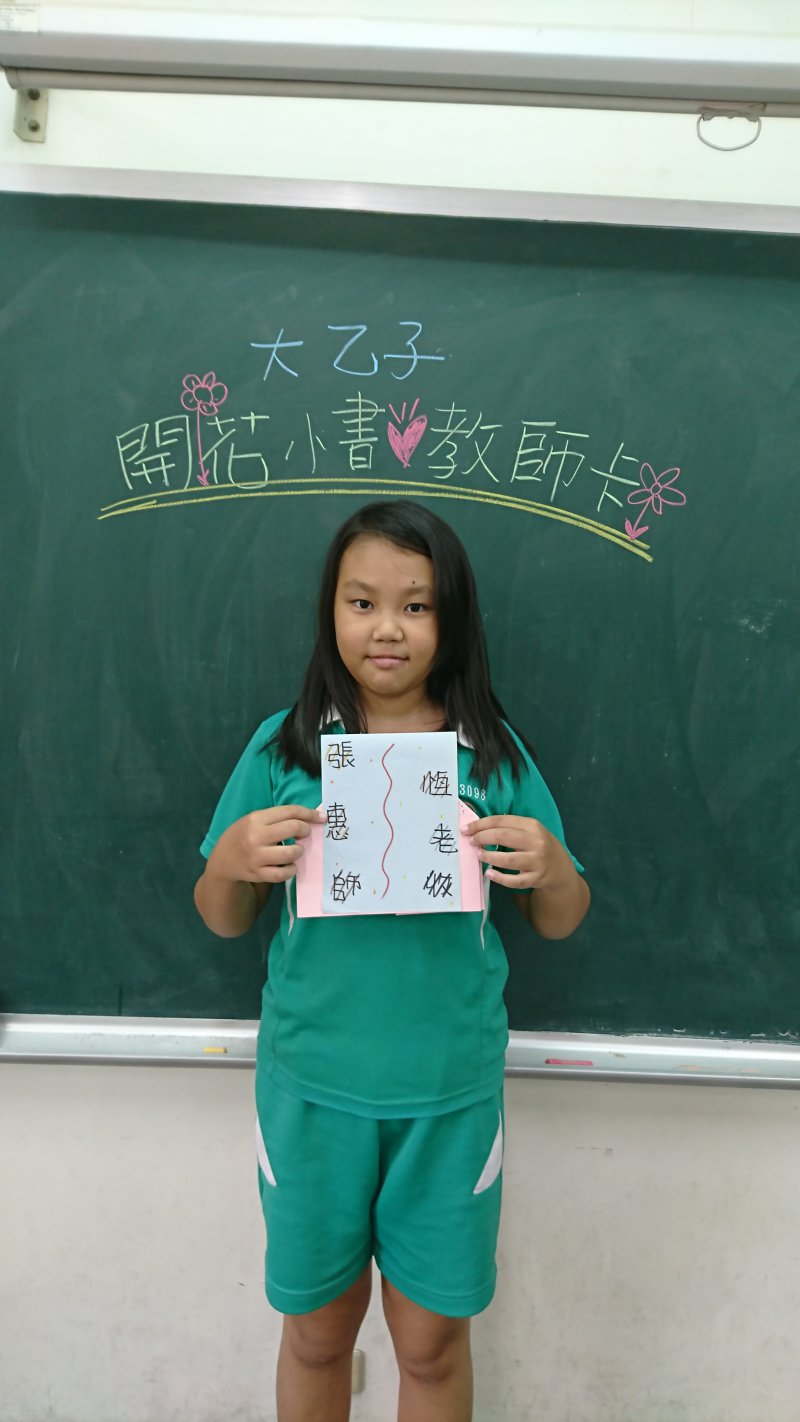 大乙子
開花小書教師卡
張 恆
惠 老
師
3098